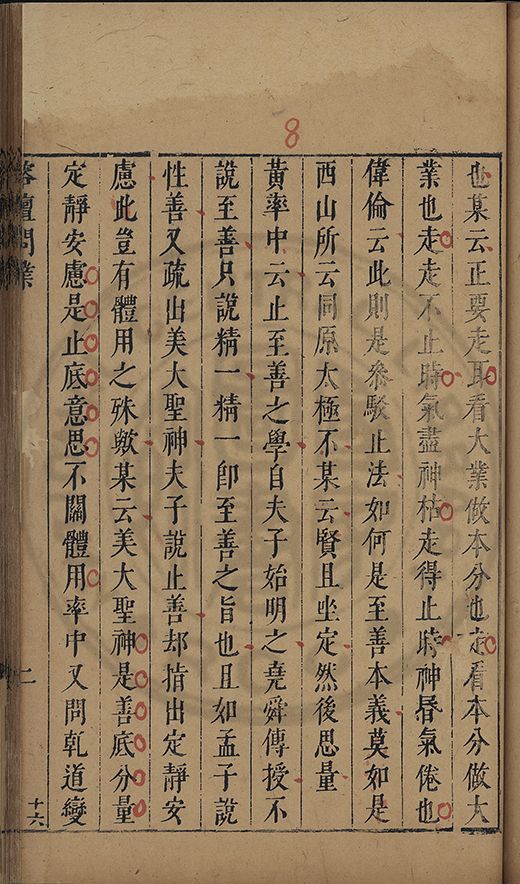 8
也某云正要走耳看大業做本分也走看本分做大
業也走走不止時氣盡神枯走得止時神昬氣倦也
偉倫云此則是叅駁止法如何是至善本義莫如是
西山所云同原太極不某云賢且坐定然後思量
黃率中云止至善之學自夫子始明之堯舜傳授不
說至善只說精一精一卽至善之旨也且如孟子說
性善又疏出美大聖神夫子說止善却指出定靜安
慮此豈有體用之殊歟某云美大聖神是善底分量
定靜安慮是止底意思不關體用率中又問乹道變
榕壇問業
二
十六